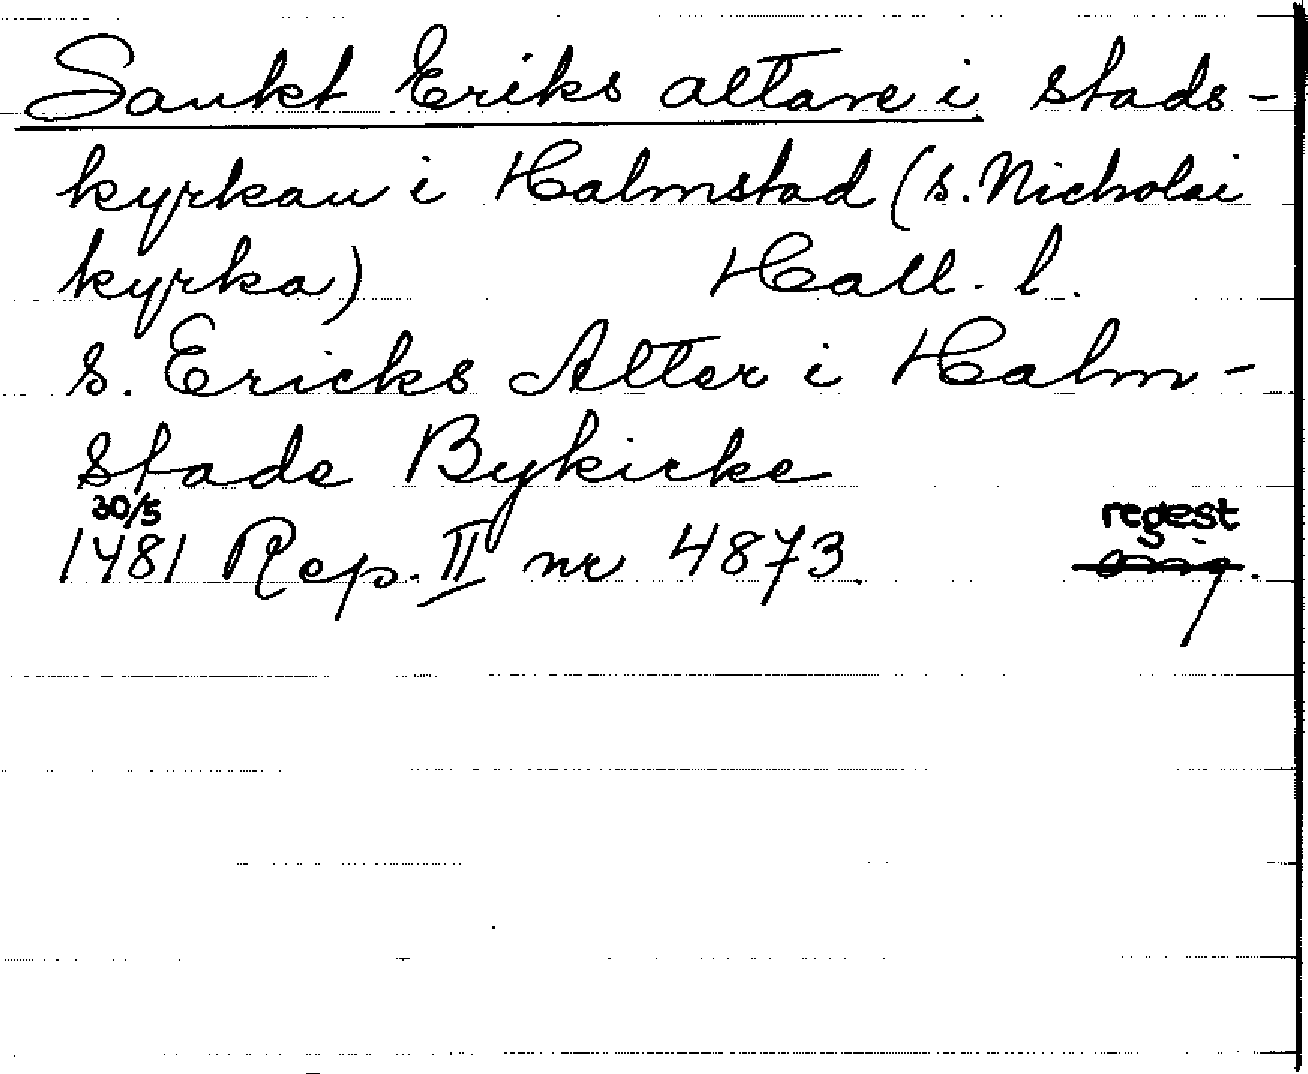 Sankt Eriks altare i stads-
kyrkan i Halmstad (s. Nicholai
kyrka) Hall. l.
s. Ericks Alter i Halm-
stade Bykirke
30/5 regest
1481 Rep. II nr 4873.